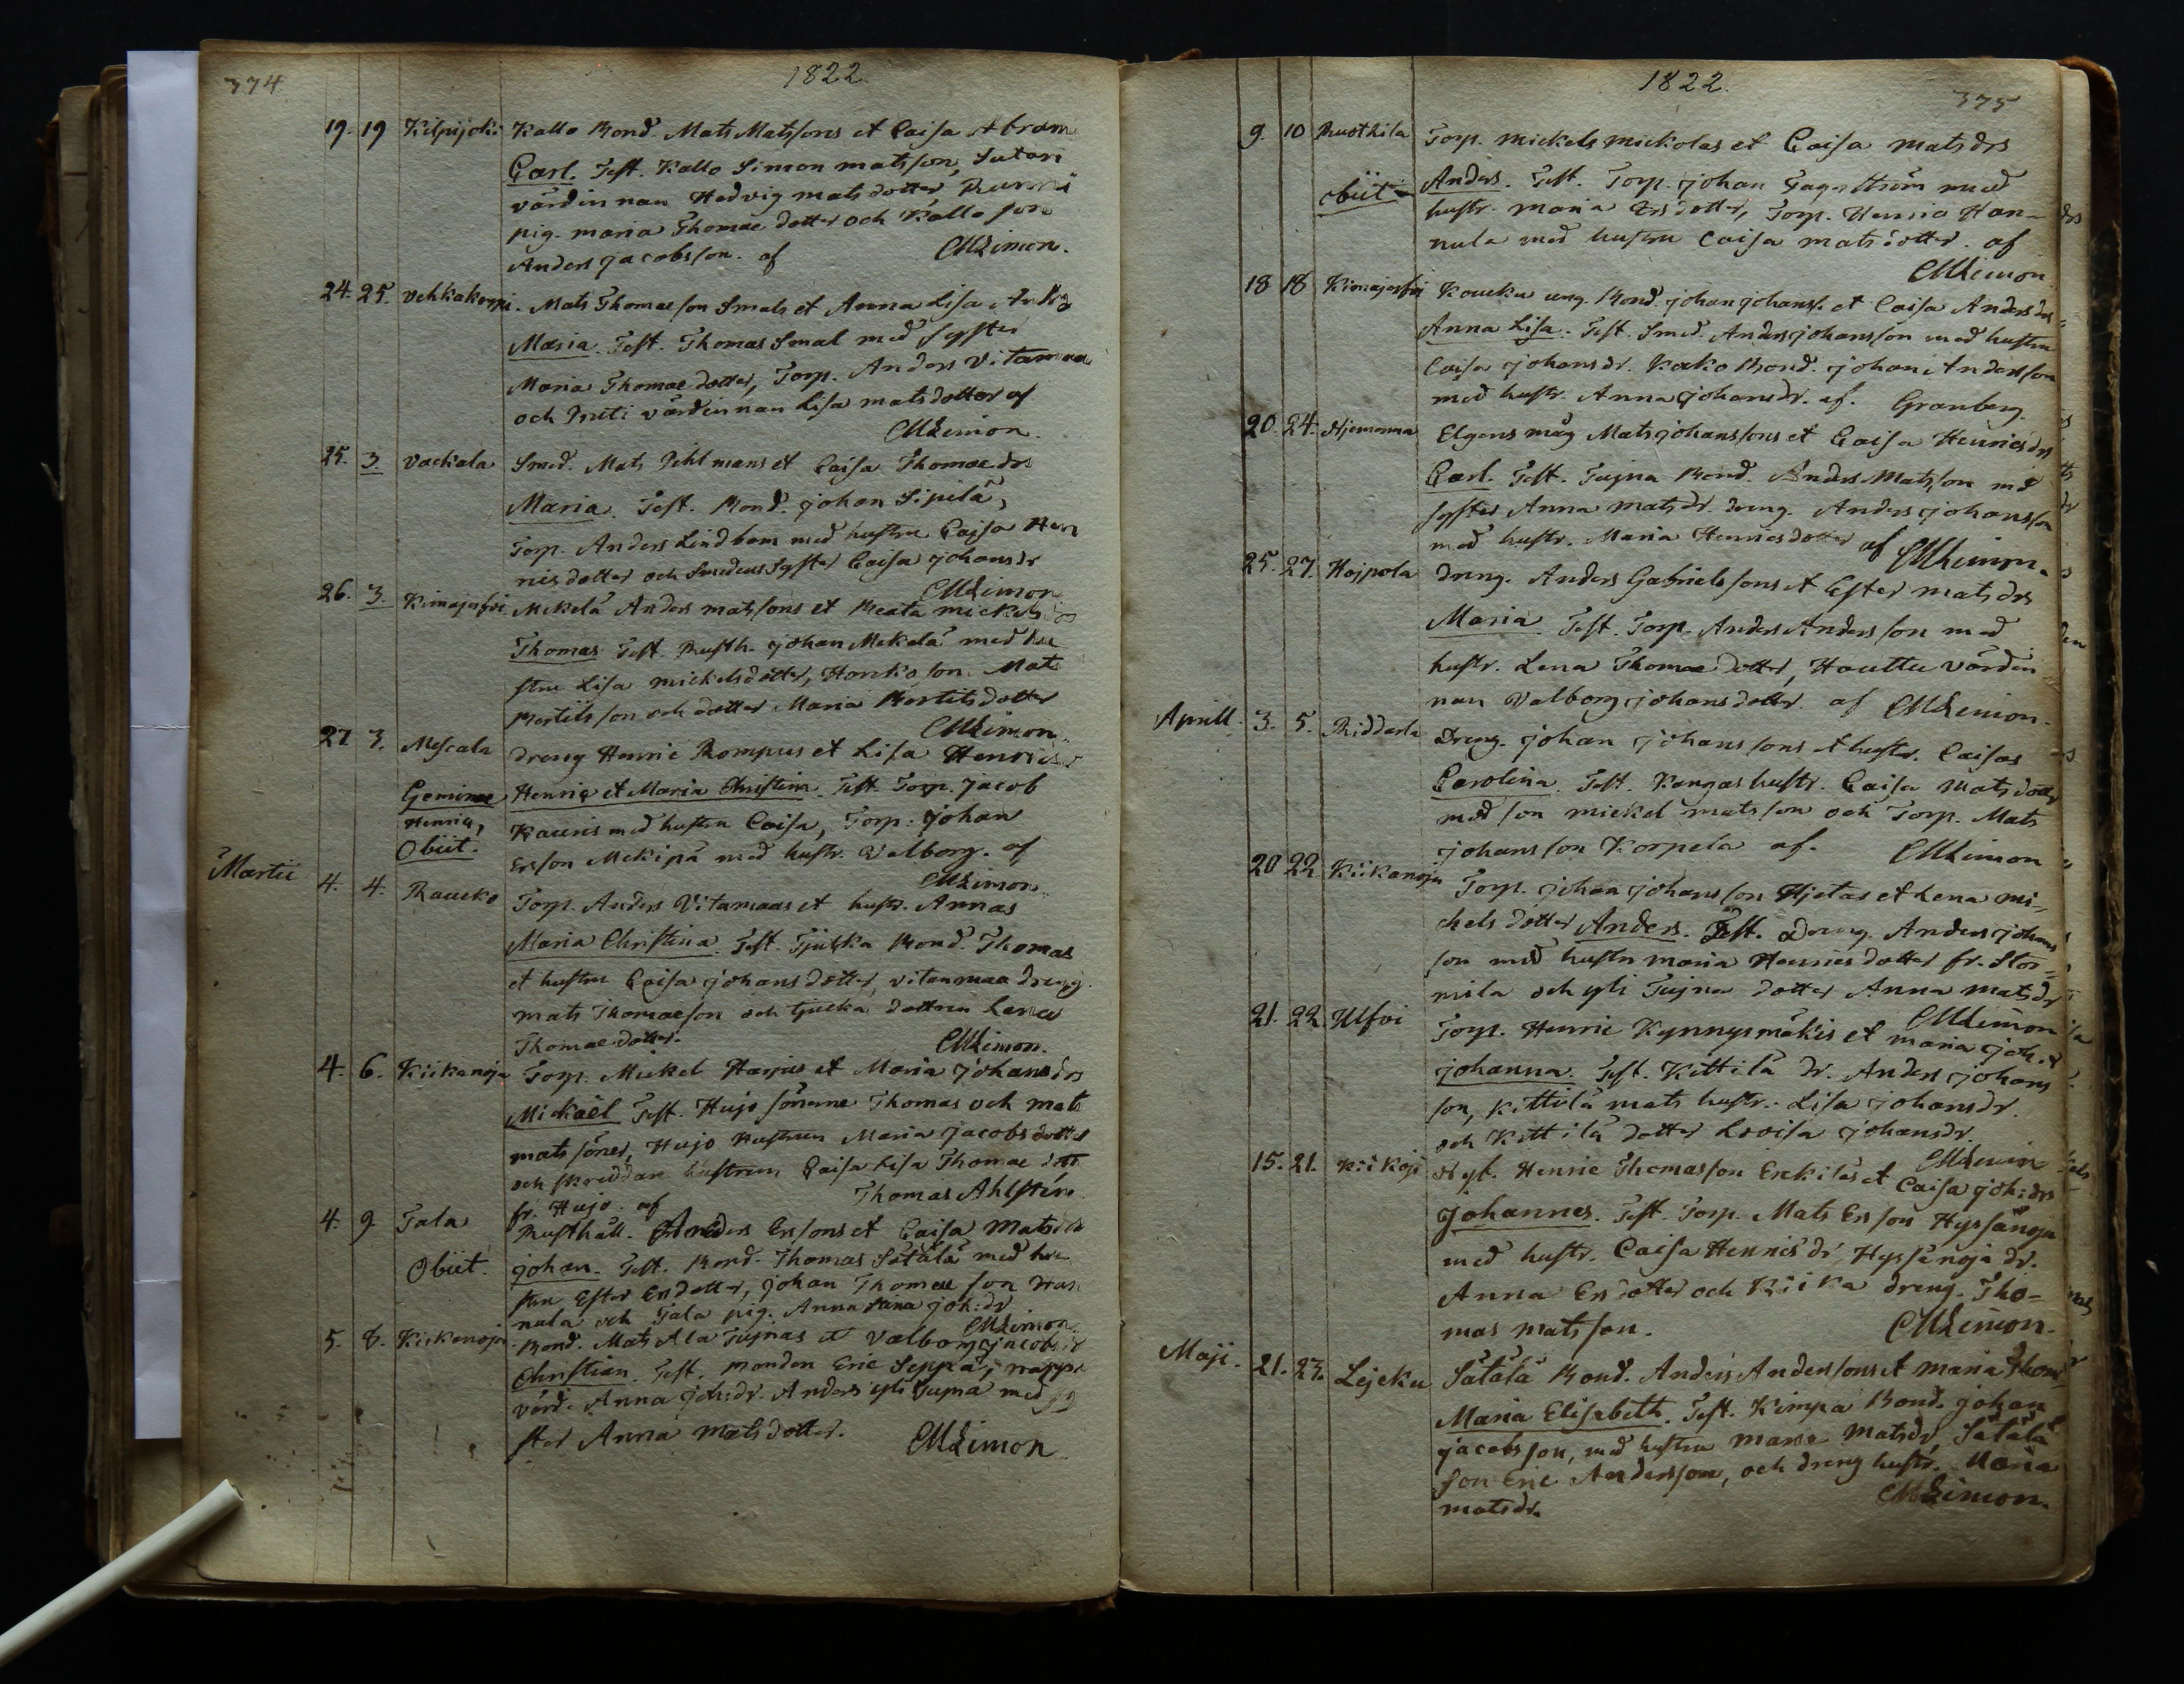 374
1822.
19. 19 Kilpijoki Kallo Bond. Mats Matssons et Caisa Abram
Carl. Test. Kallo Simon matsson, Sutari
värdinnan Hedvig matsdotter
pig. maria Thomae dotter och Kallo son
Anders Jacobsson. af CMLimon.
24. 25. Vehkakorpi. Mats Thomaeson Smals et Anna Lisa
Maria. Test. Thomas Smal med syster
Maria Thomae dotter, Torp. Anders Vitamaa
och värdinnan Lisa matsdotter af
CMLimon.
25. 3. Vackala Smed. Mats Pihlmans et Caisa Thomae drs
Maria. Test. Bond. Johan Sipilä,
Torp. Anders Lindbom med hustru Caisa Hen
ricsdotter och Smedens Syster Caisa Johansdr
CMLimon
26. 3. Kimajasfvi Mickelä Anders matssons et Beata mickels drs
Thomas Test. Rusth. Johan Mickelä med hu
stru Lisa mickelsdotter, Honko son Mats
Bertilsson och dotter Maria Bertilsdotter
CMLimon.
27 3. Mescala dreng Henric Rompus et Lisa Henrics
Geminae Henric et Maria Christina. Test. Torp. Jacob
Henric, Kauris med hustru Caisa, Torp. Johan
Obiit. Ersson Mekipä med hustr. Valborg. af
CMLimon.
Martii 4. 4. Raucko Torp. Anders Vitamaas et hustr. Annas
Maria Christina Test. Tjuska Bond. Thomas
et hustru Caisa Johansdotter, vitamaa dreng.
mats Thomaeson och tjucka dottren Lena
Thomaedotter. CMLimon.
4. 6. Kiikanoja Torp. Mickel Harjus et Maria Johans drs
Mickaël Test. Hujo sönerne Thomas och mats
mats söner, Hujo Hustrun Maria Jacobsdotter
och skräddare hustrun Caisa Lisa Thomae dott
fr. Hujo. af Thomas Ahlstén.
4. 9 Tala Rusthåll. Anders Erssons et Caisa Matsdrs
Obiit. Johan. Test. Bond. Thomas Sätälä med hu
stru Ester Ersdotter, Johan Thomae son Han
nula och Tala pig. Anna Stina joh:dr
CMLimon.
5. 8. Kiikanoja Bond. Mats Ala Tujnas et Valborg Jacobs dr
Christian. Test. Bonden Eric Seppä,
värd. Anna Joh:dr. Anders yli Tujna med sy
ster Anna Matsdotter. CMLimon
1822.
375
9. 10 Rusthila Torp. mickels mickolas et Caisa mats drs
obiit Anders. Test. Torp. Johan Fagerström med
hustr. maria Ersdotter, Torp. Henric Han-
nula med hustru Caisa matsdotter. af
CMLimon
18 18 Kimajasfvi Koucku ung. Bond. Johan Johanss. et Caisa Anders drs
Anna Lisa. Test. Smed. Anders Johansson med hustru
Caisa Johansdr. Kocko Bond. Johan Andersson
med hustr. Anna Johansdr. af. Granberg.
20. 24. Hjemanna Elgens måg Mats Johanssons et Caisa Henrics drs
Carl. Test. Tujna Bond. Anders Matsson med
syster Anna matsdr. dreng. Anders Johansson
med hustr. Maria Henricsdotter af CMLimon.
25. 27. Hojpola dreng. Anders Gabrielssons et Ester mats drs
Maria. Test. Torp. Anders Andersson med
hustr. Lena Thomaedotter, Houttu värdin
nan Valborg Johansdotter. af CMLimon.
Aprill. 3. 5. Ridderla Dreng. Johan Johanssons et hustr. Caisas
Carolina. Test. Kangas hustr. Caisa Matsdotter
med son mickel matsson och Torp. Mats
Johansson Korpela af. CMLimon
20 22 Kiikanoja Torp. Johan Johansson Hjetas et Lena mi-
ckels dotter Anders. Test. Dreng. Anders Johans
son med hustru maria Henricsdotter fr. Stor-
mila och yli Tujna dotter Anna matsdr
CMLimon
21. 22. Ulfvi Torp. Henric Kynnysmäkis et maria joh. d
Johanna. Test. Kittilä dr. Anders Johans
son, Kittilä mats hustr. Lisa Johansdr.
och Kittilä dotter Lovisa Johansdr.
CMLimon
15. 21. Kiikoji Nyb. Henric Thomasson Erckiläs et Caisa joh:drs
Johannes. Test. Torp. Mats Ersson Hyssänoja
med hustr. Caisa Henricsdr, Hyssänoja dr.
Anna Ersdotter och Kiika dreng. Tho-
mas matsson. CMLimon.
Maji. 21. 23. Lejeku Sätälä Bond. Anders Anderssons et maria Thom
Maria Elisabeth. Test. Kimpa Bond. Johan
Jacobsson, med hustru maria Matsdr, Sätälä
son Eric Andersson, och dreng hustr. Maria
matsdr. CMLimon.